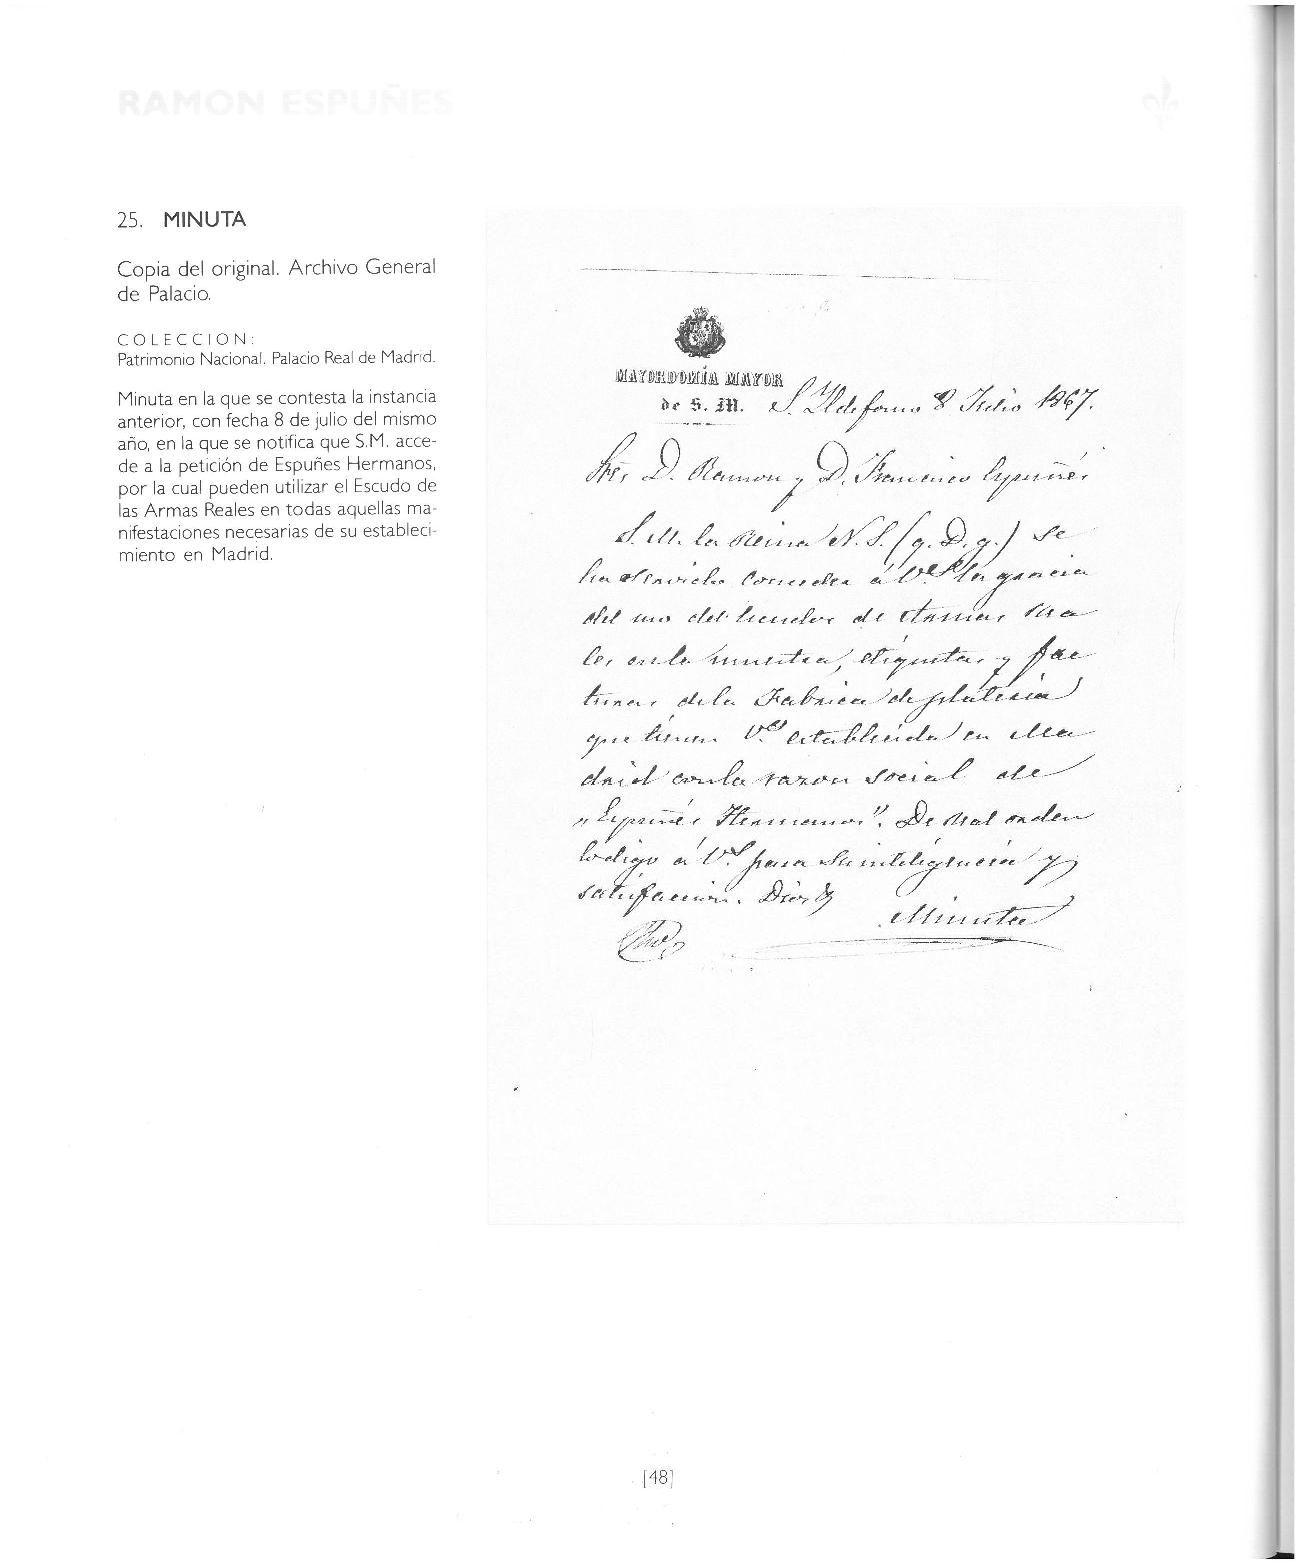 RAMON ESPUÑES
25. MINUTA
Copia del original. Archivo General
de Palacio.
COLECCION:
Patrimonio Nacional. Palacio Real de Madrid.
Minuta en la que se contesta la instancia
anterior, con fecha 8 de julio del mismo
año, en la que se notifica que S.M. acce-
de a la petición de Espuñes Hermanos,
por la cual pueden utilizar el Escudo de
las Armas Reales en todas aquellas ma-
nifestaciones necesarias de su estableci-
miento en Madrid.
MAYORDOMÍA MAYOR
de S. M.
S. Yldefonso 8 Julio 1867.
Sres D. Ramon y D. Francisco Espuñes
S. M. la Reina N. S. (q. D. g.) se
ha servido conceder á Vs. la gracia
del uso del Escudo de Armas Rea
les en la muestra, etiquetas y fac
turas de la Fabrica de plateria
que tienen Vs. establecida en Ma
drid con la razon social de
"Espuñes Hermanos". De Real orden
lo digo á Vs. para su inteligencia y
satisfaccion. Dios &
Minuta
[48]